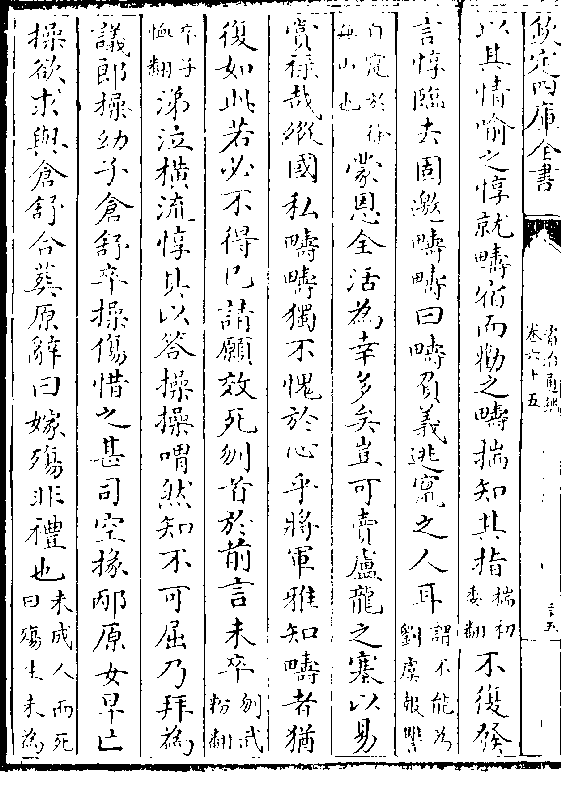 欽定四庫全書
資治通鑑
卷六十五
以其情喻之惇就疇宿而勸之疇揣知其指揣初委翻不復發
言惇臨去固邀疇疇曰疇負義逃竄之人耳謂不能為劉虞報讐
自竄於徐無山也蒙恩全活為幸多矣豈可賣盧龍之塞以易
賞祿哉縱國私疇疇獨不愧於心乎將軍雅知疇者猶
復如此若必不得已請願效死刎首於前言未卒刎武粉翻
卒子恤翻涕泣橫流惇具以答操操喟然知不可屈乃拜為
議郎操幼子倉舒卒操傷惜之甚司空掾邴原女早亡
操欲求與倉舒合葬原辭曰嫁殤非禮也未成人而死曰殤生未為